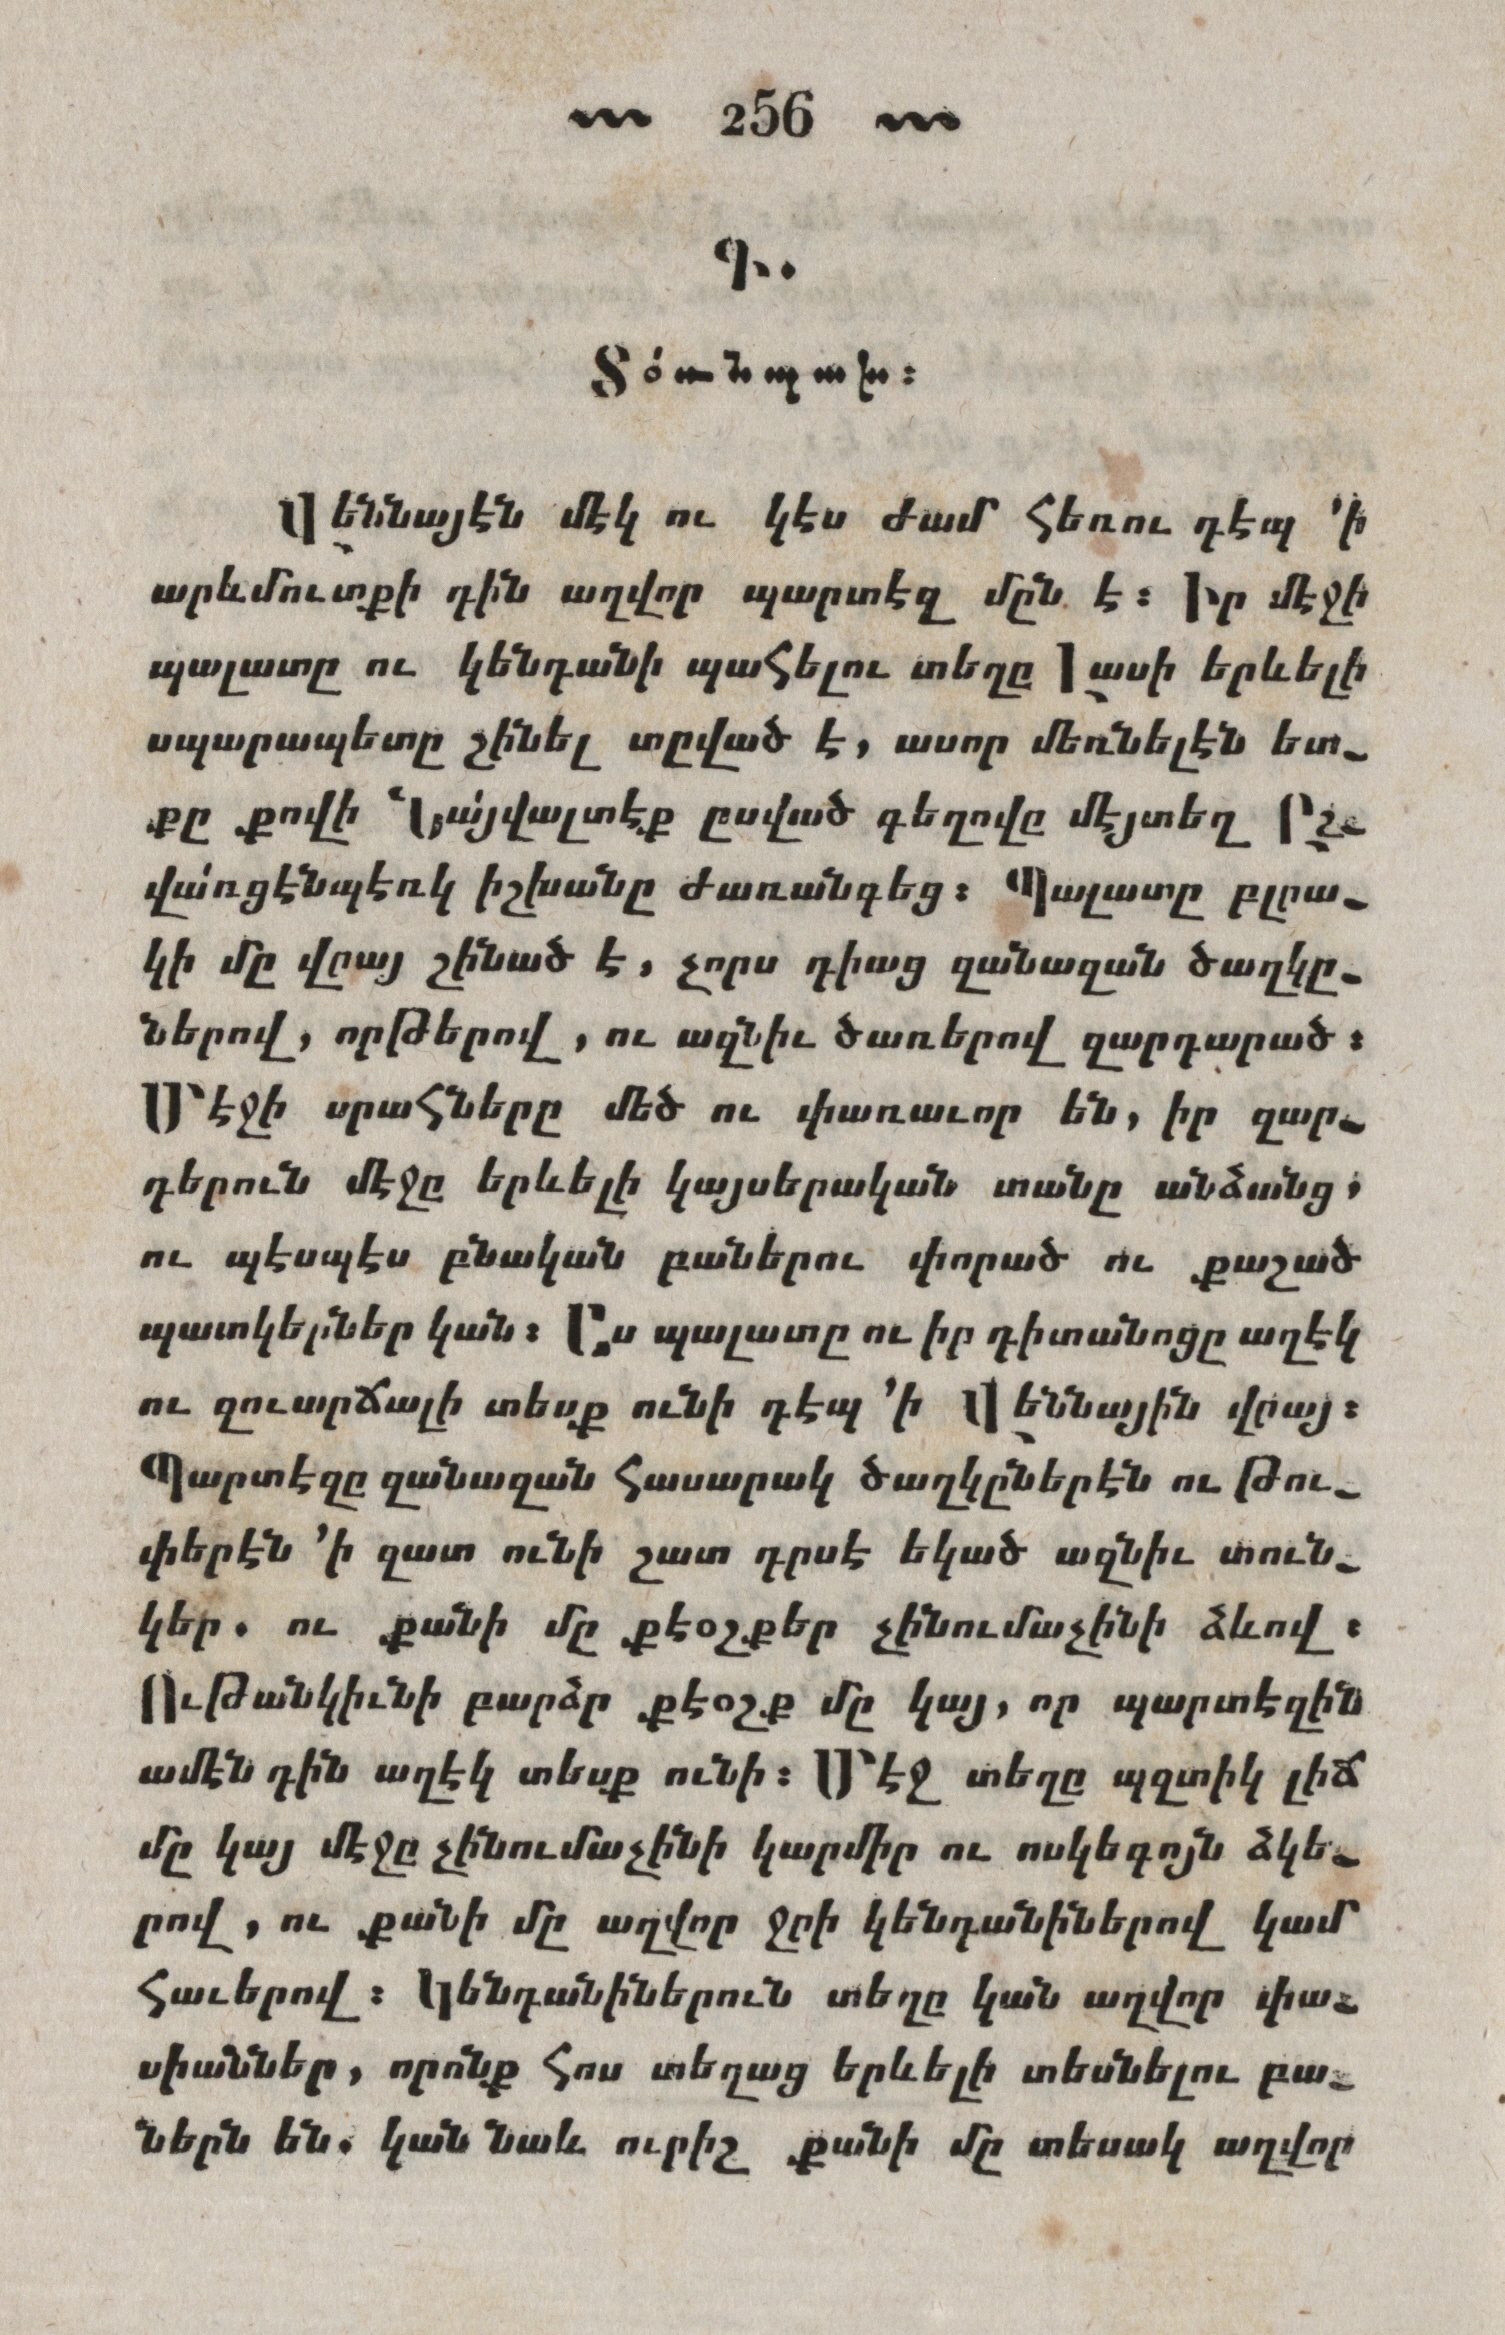 256
Դ.
Տօ՛ռնպախ։
Վէննայէն մէկ ու կէս ժամ հեռու դէպ ՚ի
արևմուտքի դին աղվոր պարտէզ մըն է։ Իր մէջի
պալատը ու կենդանի պահելու տեղը Լասի երևելի
սպարապետը շինել տըված է, ասոր մեռնելէն ետ֊
քը քովի Նա՛յվալտէք ըսված գեղովը մէյտեղ Շ֊
վա՛ռցէնպէռկ իշխանը ժառանգեց։ Պալատը բլրա֊
կի մը վրայ շինած է, չորս դիաց զանազան ծաղկը֊
ներով, որթերով, ու ազնիւ ծառերով զարդարած։
Մէջի սրահները մեծ ու փառաւոր են, իր զար֊
դերուն մէջը երևելի կայսերական տանը անձանց,
ու պէսպէս բնական բաներու փորած ու քաշած
պատկերներ կան։ Ըս պալատը ու իր դիտանոցը աղէկ
ու զուարճալի տեսք ունի դէպ ՚ի Վէննային վրայ։
Պարտէզը զանազան հասարակ ծաղկըներէն ու թու֊
փերէն ՚ի զատ ունի շատ դրսէ եկած ազնիւ տուն֊
կեր. ու քանի մը քէօշքեր չինումաչինի ձևով։
Ութանկիւնի բարձր քէօշք մը կայ, որ պարտէզին
ամէն դին աղէկ տեսք ունի։ Մէջ տեղը պզտիկ լիճ
մը կայ մէջը չինումաչինի կարմիր ու ոսկեգոյն ձկե֊
րով, ու քանի մը աղվոր ջրի կենդանիներով կամ
հաւերով։ Կենդանիներուն տեղը կան աղվոր փա֊
սիաններ, որոնք հոս տեղաց երևելի տեսնելու բա֊
ներն են. կան նաև ուրիշ քանի մը տեսակ աղվոր